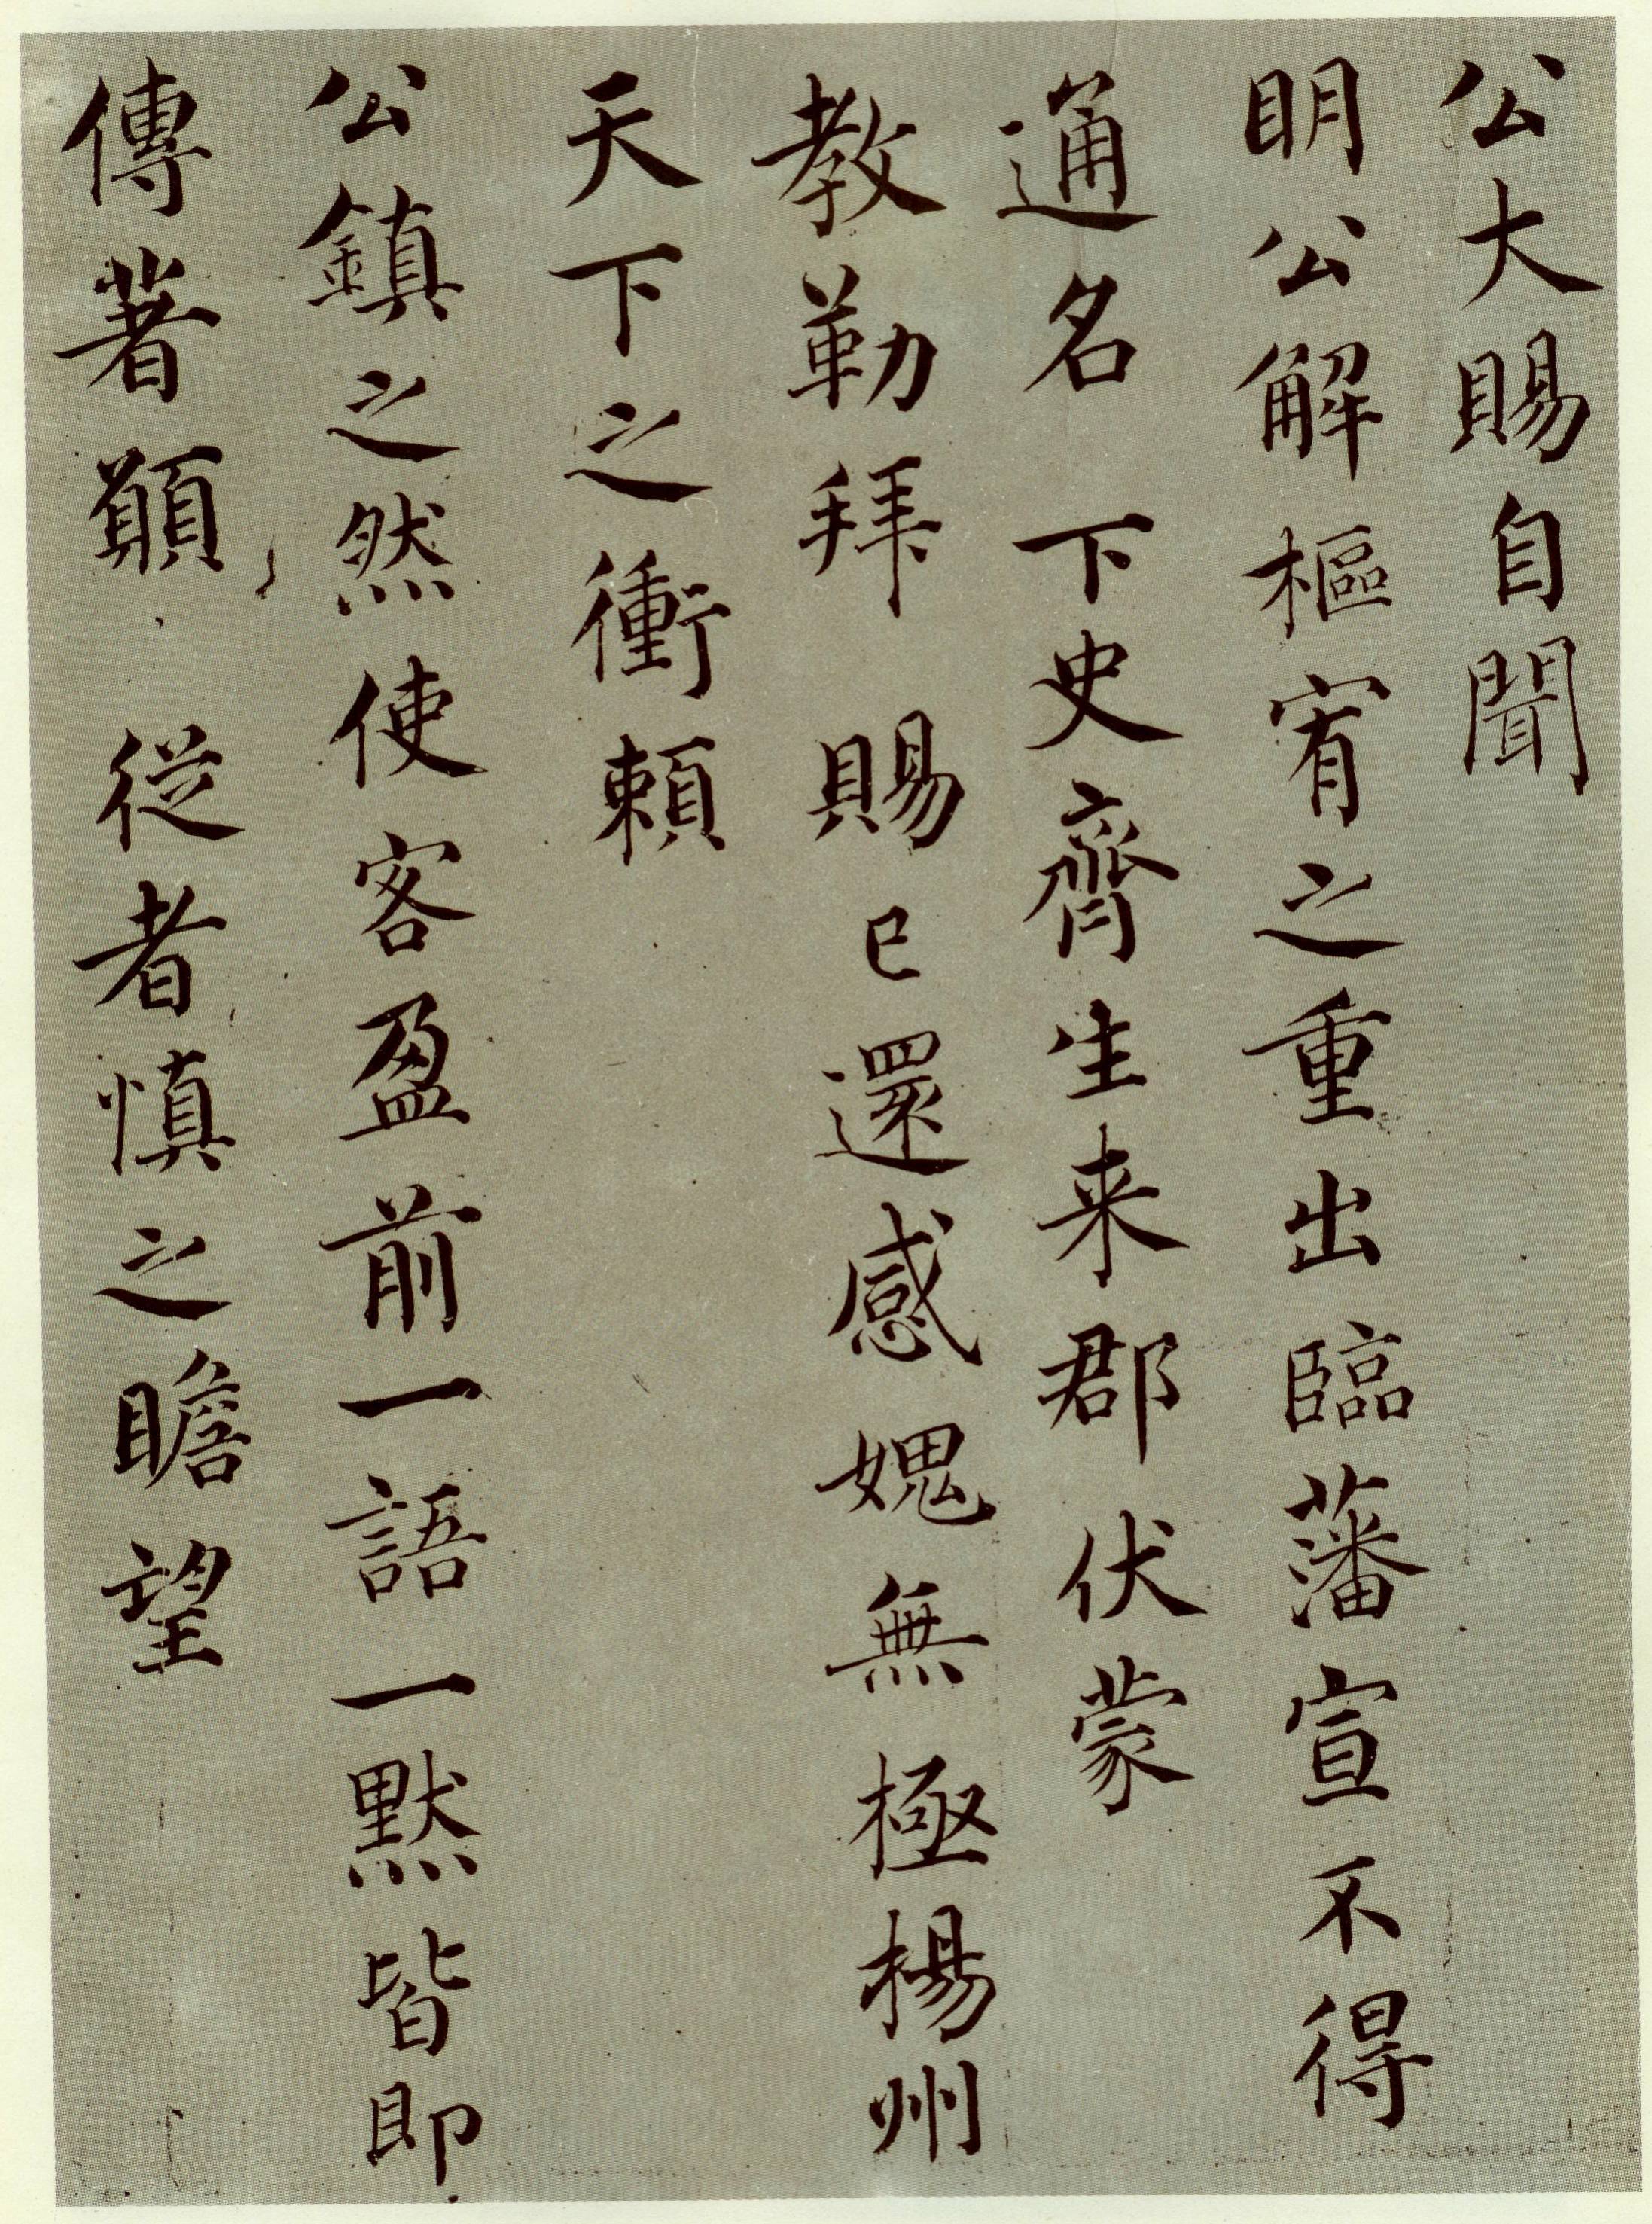 公大賜自聞
明公解樞宥之重出臨藩宣不得
通名 下史齊生来郡伏蒙
教勒拜 賜已還感媿無極楊州
天下之衝頼
公鎮之然使客盈前一語一默皆即
傳著顧 従者慎之瞻望